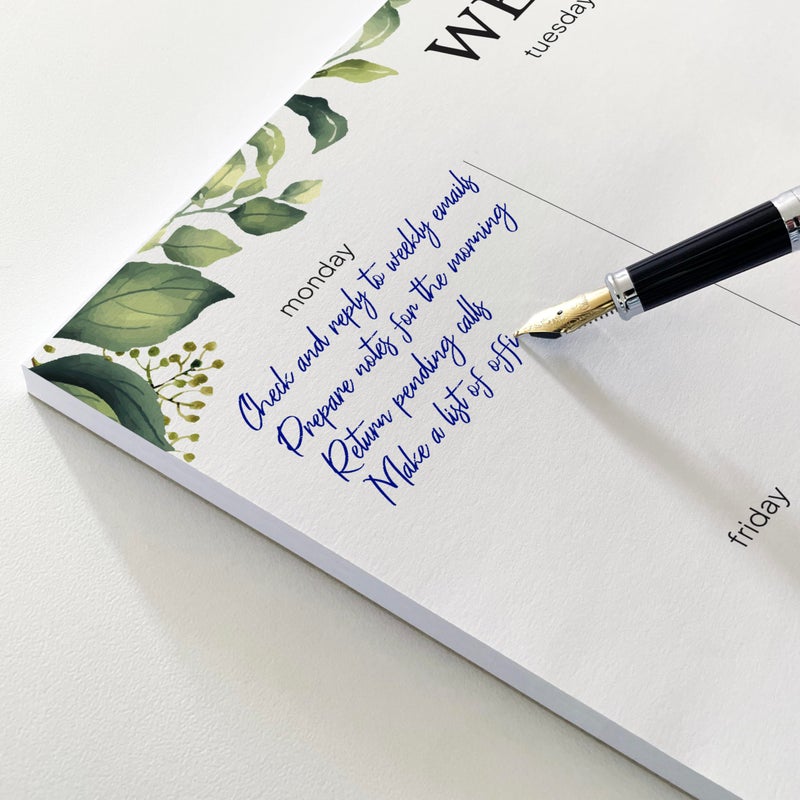 WE
tuesday
monday
Check and reply to weekly emails
Prepare notes for the morning
Return pending calls
Make a list of offi
friday